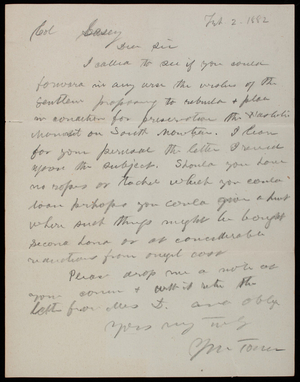 Feb. 2. 1892
Col Casey
Dear Sir
I called to see if you could
forward in any way the wishes of the
Gentlemen proposing to rebuild & place
in condition for preservation the
Monumt on South Mountain. I leave
for your perusal the letter I received
upon the subject. Should you have
no ropes or tackle which you could
loan perhaps you could give a hint
where such things might be bought
second hand or at considerable
reductions from origl cost
Please drop me a note at
your conven & with it return the
letter from Mrs D. and oblige
Yours very truly